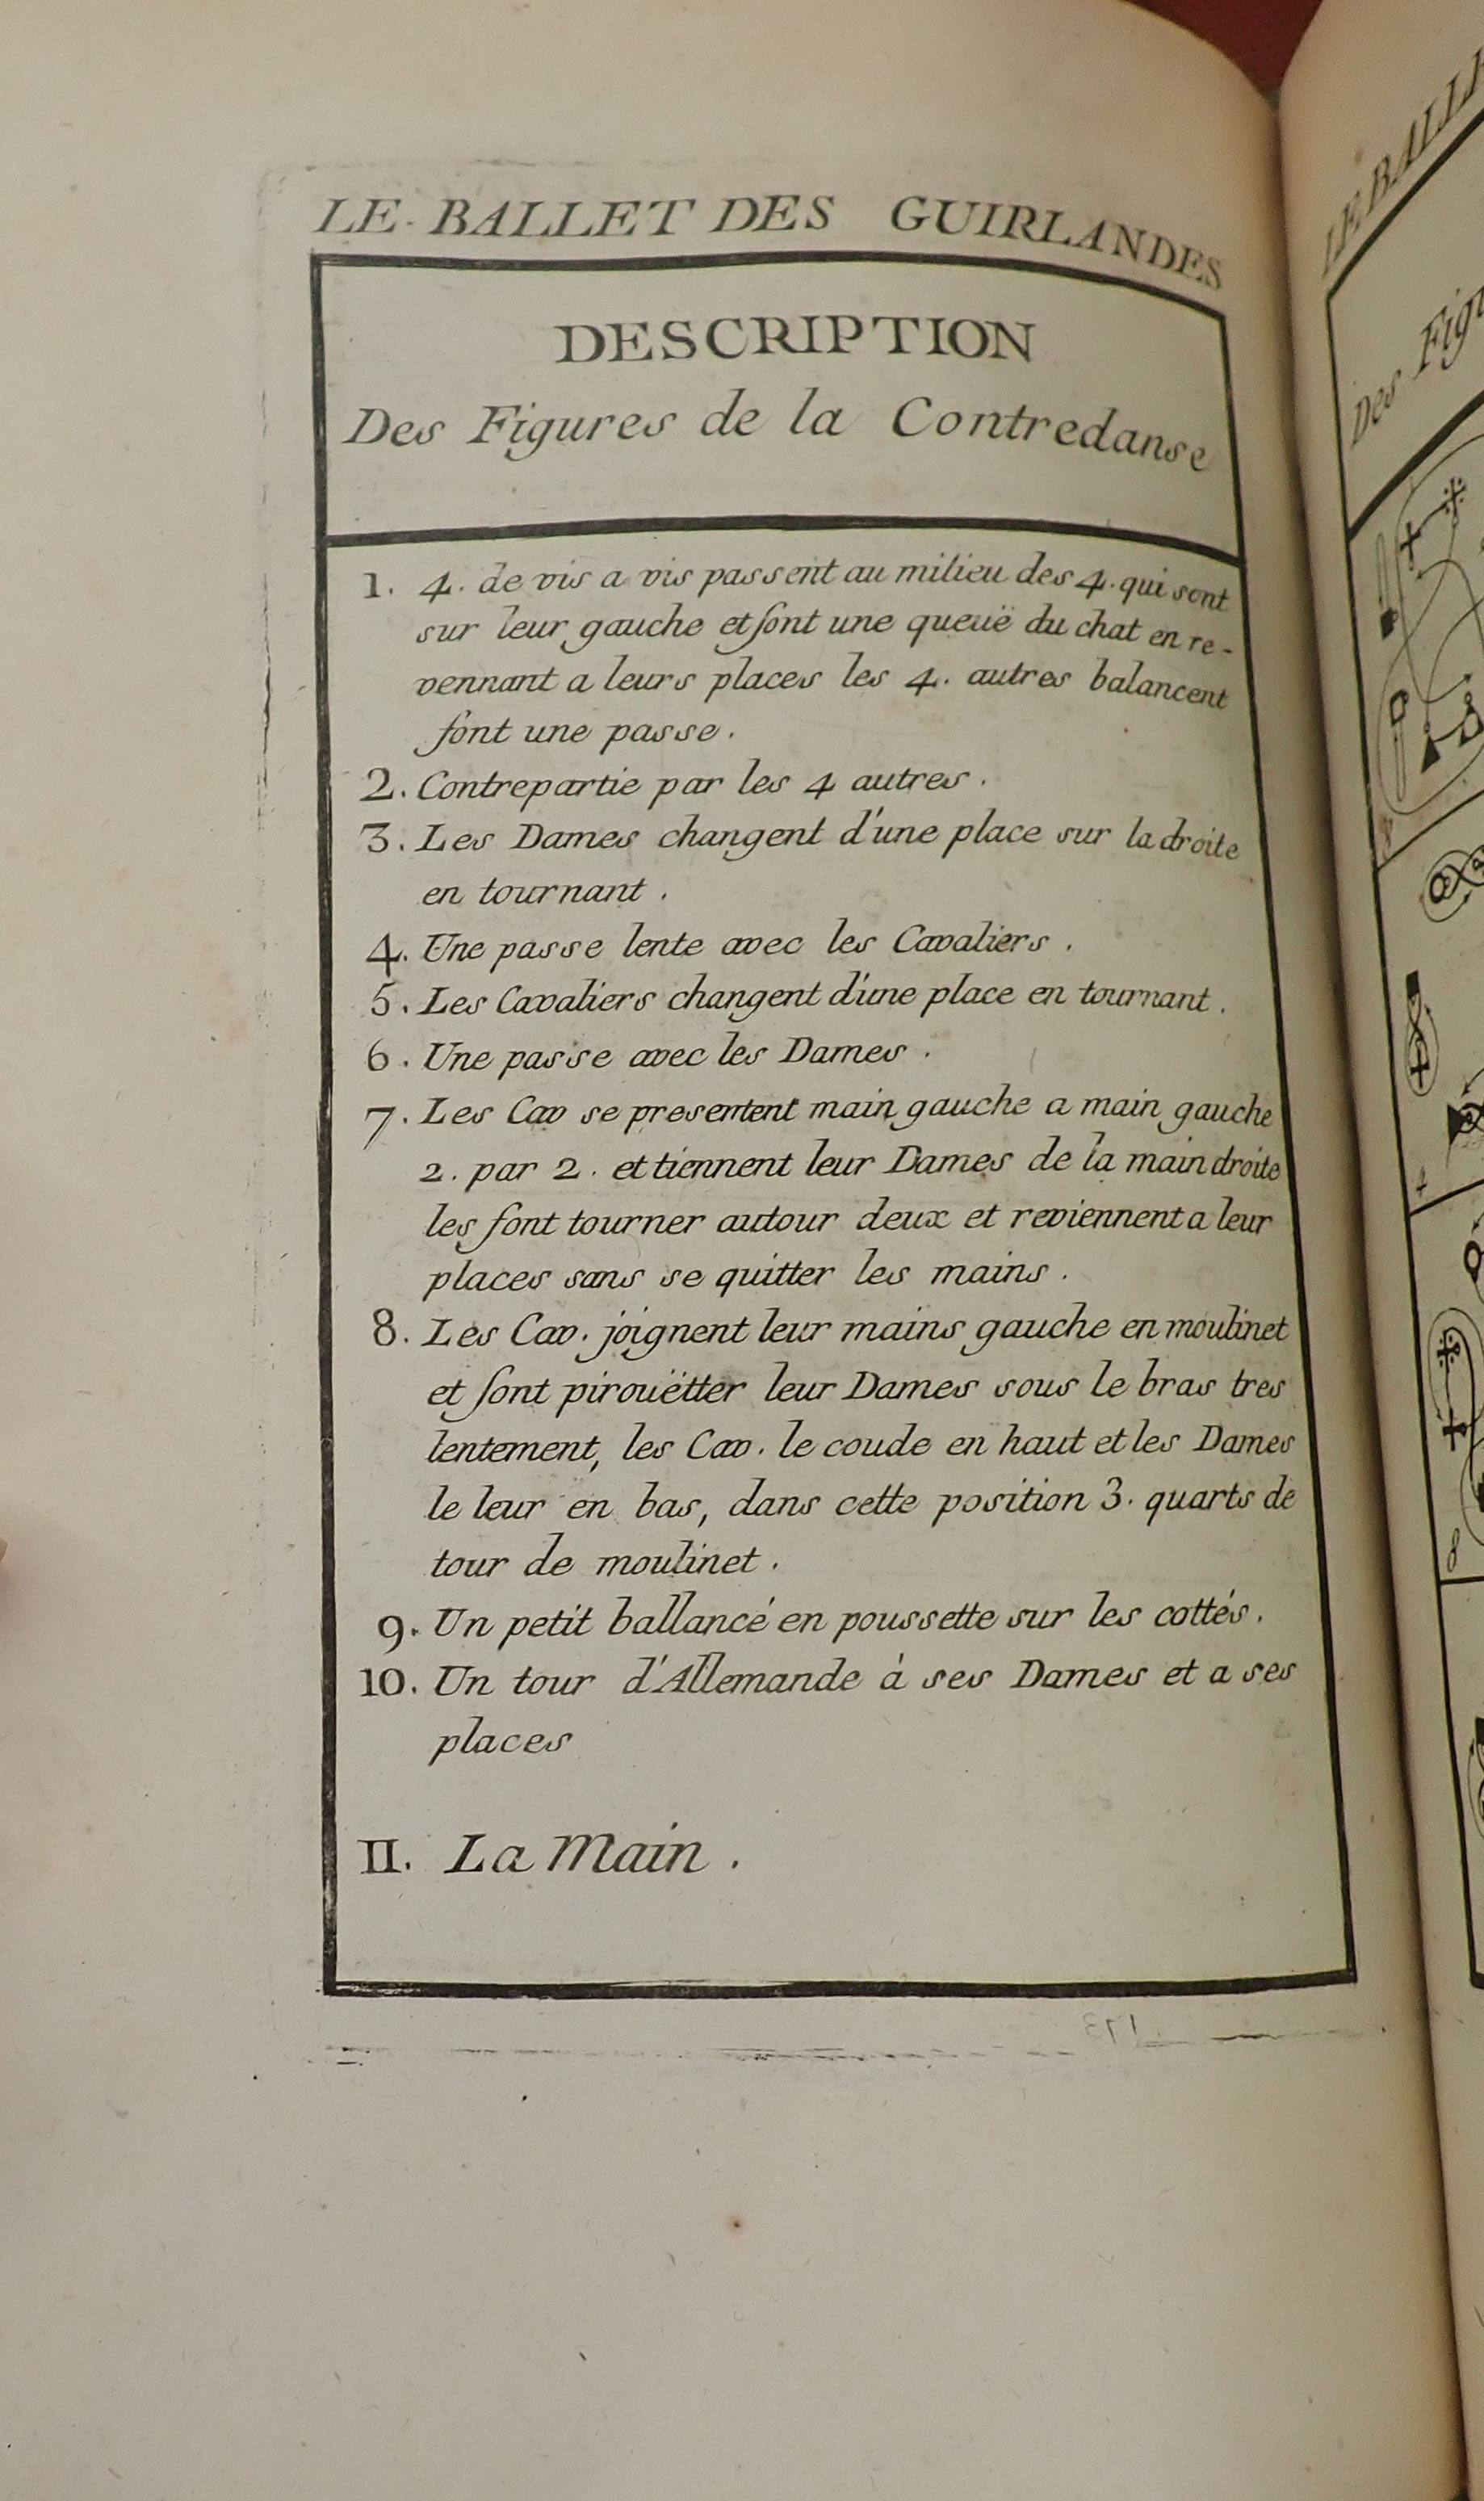 LE BALLET DES GUIRLANDES
DESCRIPTION
Des Figures de la Contredanse
1. 4. de vis a vis passent au milieu des 4. qui sont
sur leur gauche et font une queuë du chat en re-
vennant a leurs places les 4. autres balancent
font une passe.
2. Contrepartie par les 4 autres.
3. Les Dames changent d'une place sur la droite
en tournant.
4. Une passe lente avec les Cavaliers.
5. Les Cavaliers changent d'une place en tournant.
6. Une passe avec les Dames.
7. Les Cav se presentent main gauche a main gauche
2. par 2. et tiennent leur Dames de la main droite
les font tourner autour deux et reviennent a leur
places sans se quitter les mains.
8. Les Cav. joignent leur mains gauche en moulinet
et font pirouëtter leur Dames sous le bras tres
lentement, les Cav. le coude en haut et les Dames
le leur en bas, dans cette position 3. quarts de
tour de moulinet.
9. Un petit ballancé en poussette sur les cottés.
10. Un tour d'Allemande à ses Dames et a ses
places
II. La Main.
LE BALLE
Des Figu
4
8